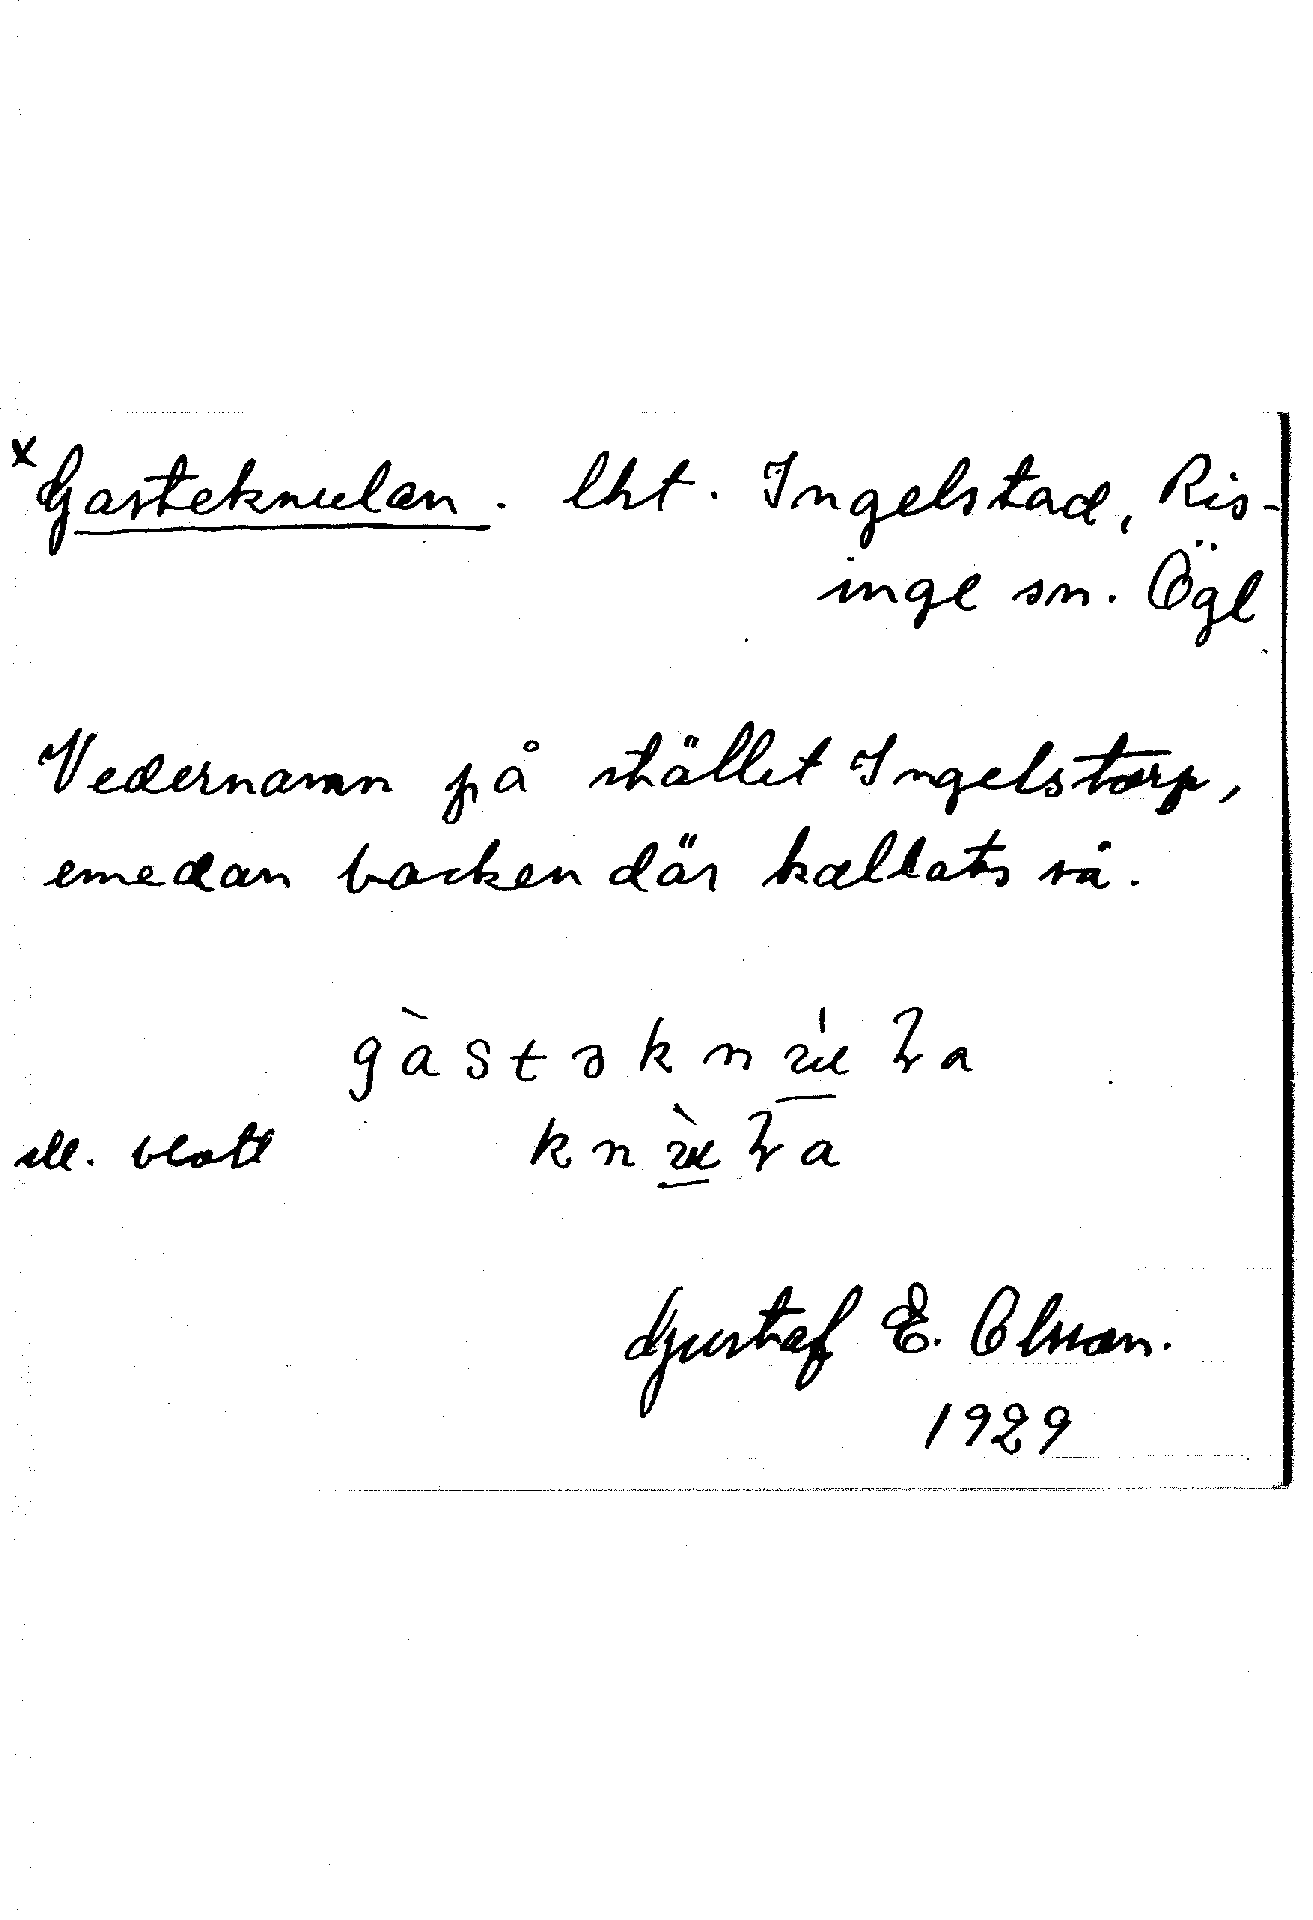 x Gasteknulan. lht. Ingelstad, Ris-
inge sn. Ögl
Vedernamn på stället Ingelstorp,
emedan backen där kallats så.
gàstəknu̲ɽa
ell. blott knù̲ɽa
Gustaf E. Olsson.
1929